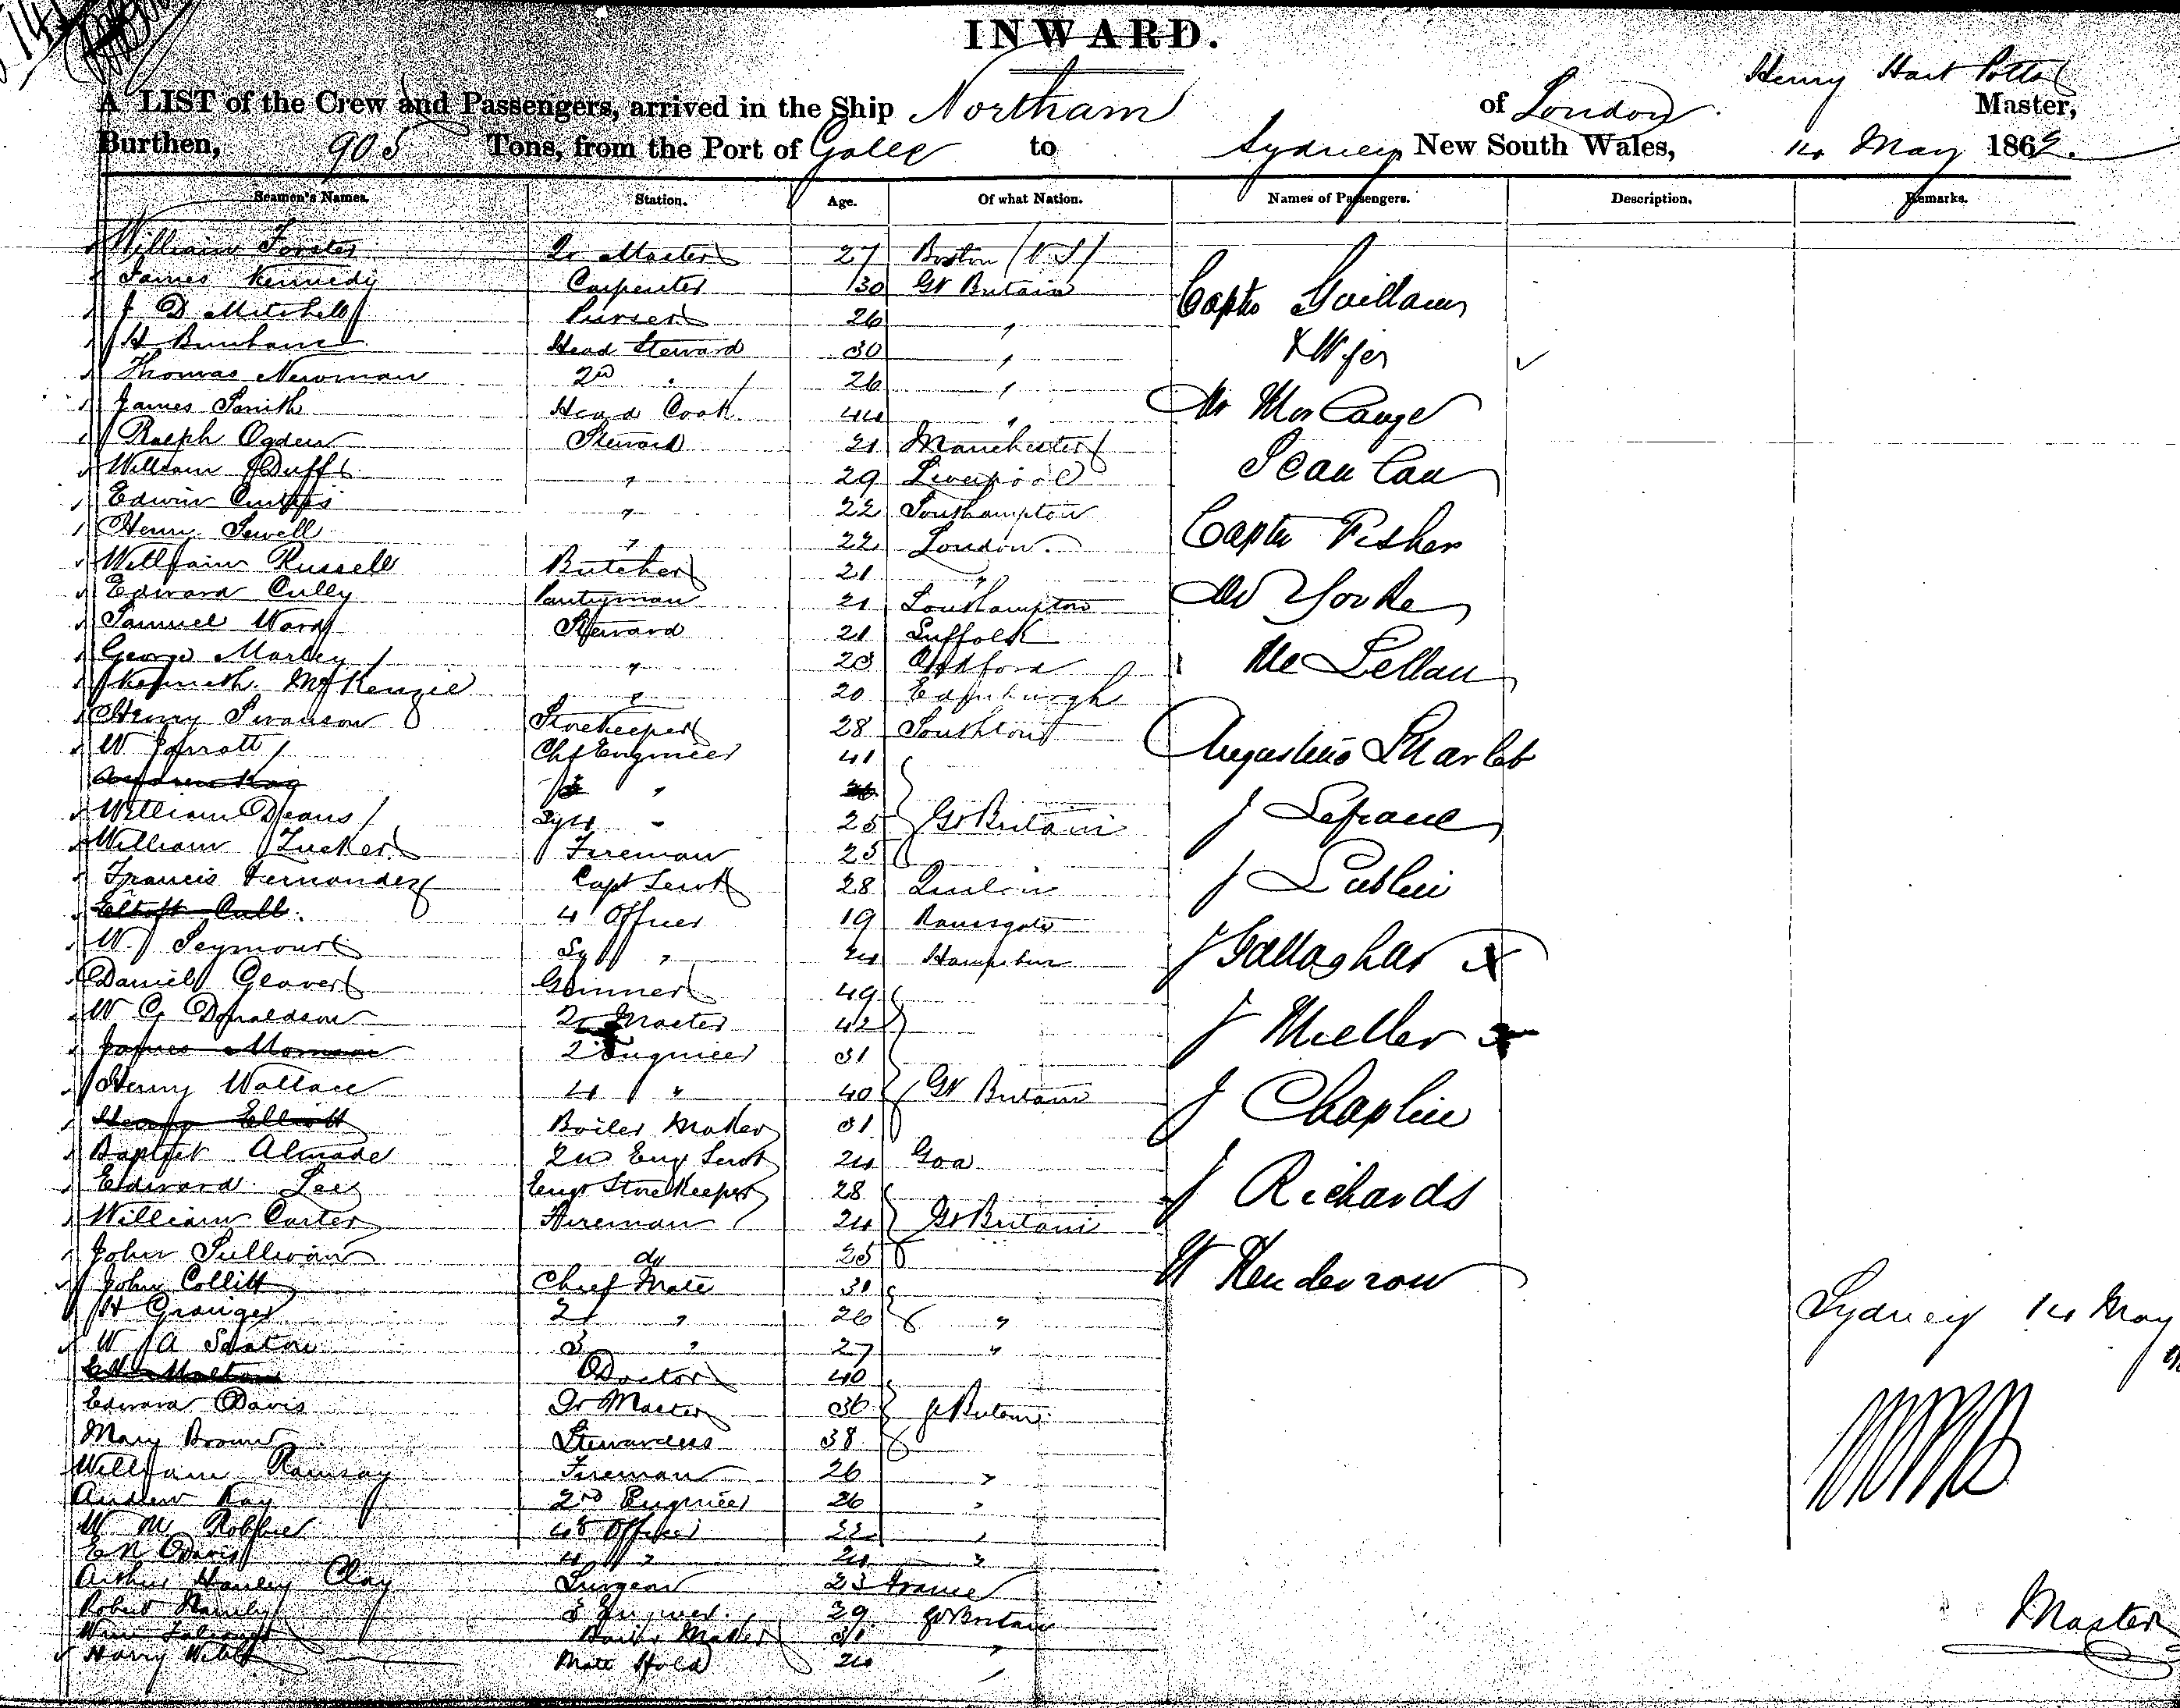 INWARD.
Henry Hart Potts
A LIST of the Crew and Passengers, arrived in the Ship Northam of London Master,
Burthen, 905 Tons, from the Port of Galle to Sydney New South Wales, 14 May 1862.
Seamen's Names. Station. Age. Of what Nation. Names of Passengers. Description. Remarks.
William Forster Qr Master 27 Boston (US)
James Kennedy Carpenter 30 Gt Britain
Capt Guillaum
J D Mitchell Purser 26 "
H Burnham Head Steward 30 "
& Wife
Thomas Newman 2nd " 26 "
James Smith Head Cook 44 "
Mr
Ralph Ogden Steward 21 Manchester
William Duff " 29 Liverpool
Edwin " 22 Southampton
Henry Sewell " 22 London
Capt Fisher
William Russell Butcher 21 "
Edward Cully Pantryman 21 Southampton
Mr Yorke
Samuel Ward Steward 21 Suffolk
George Marley " 23 Oxford
McLellan
Kenneth McKenzie " 20 Edinburgh
Henry Swanson Storekeeper 28 Southton
W Jarratt Chf Engineer 41
Augustino
Andrew Kay 3 "
William Deans " 25 Gt Britain
J Lefrane
William Tucker Fireman 25
Francis Fernandez Capt Servt 28
J Lublin
Cull 4 Officer 19 Ramsgate
W Seymour " 24 Hampshire
J Gallaghar x
Daniel Glover Gunner 49
W G Donaldson Qr Master 42
J Mueller x
James Morrison 2 Engineer 31
Henry Wallace 4 " 40 Gt Britain
J Chaplin
Henry Elliott Boiler Maker 31
Baptist Almade 2nd Eng Servt 24 Goa
Edward Lee Engr Storekeeper 28
J Richards
William Carter Fireman 24 Gt Britain
John Sullivan do 25
W Henderson
John Collitt Chief Mate 31
H Granger 2 " 26 "
Sydney 14 May
W A Seaton 3 " 27 "
Doctor 40
Edward Davis Qr Master 36 Gt Britain
Mary Brown Stewardess 38
William Ramsay Fireman 26 "
Andrew Kay 2nd Engineer 26 "
W M Robbie 4th Officer 22 "
E N Davis 4 " 24 "
Arthur Hanley Clay Surgeon 23 France
Robert 3 Engineer 29 Gt Britain
Wm Boiler Maker 31 "
Harry Webb Mate Hold 24 "
Master